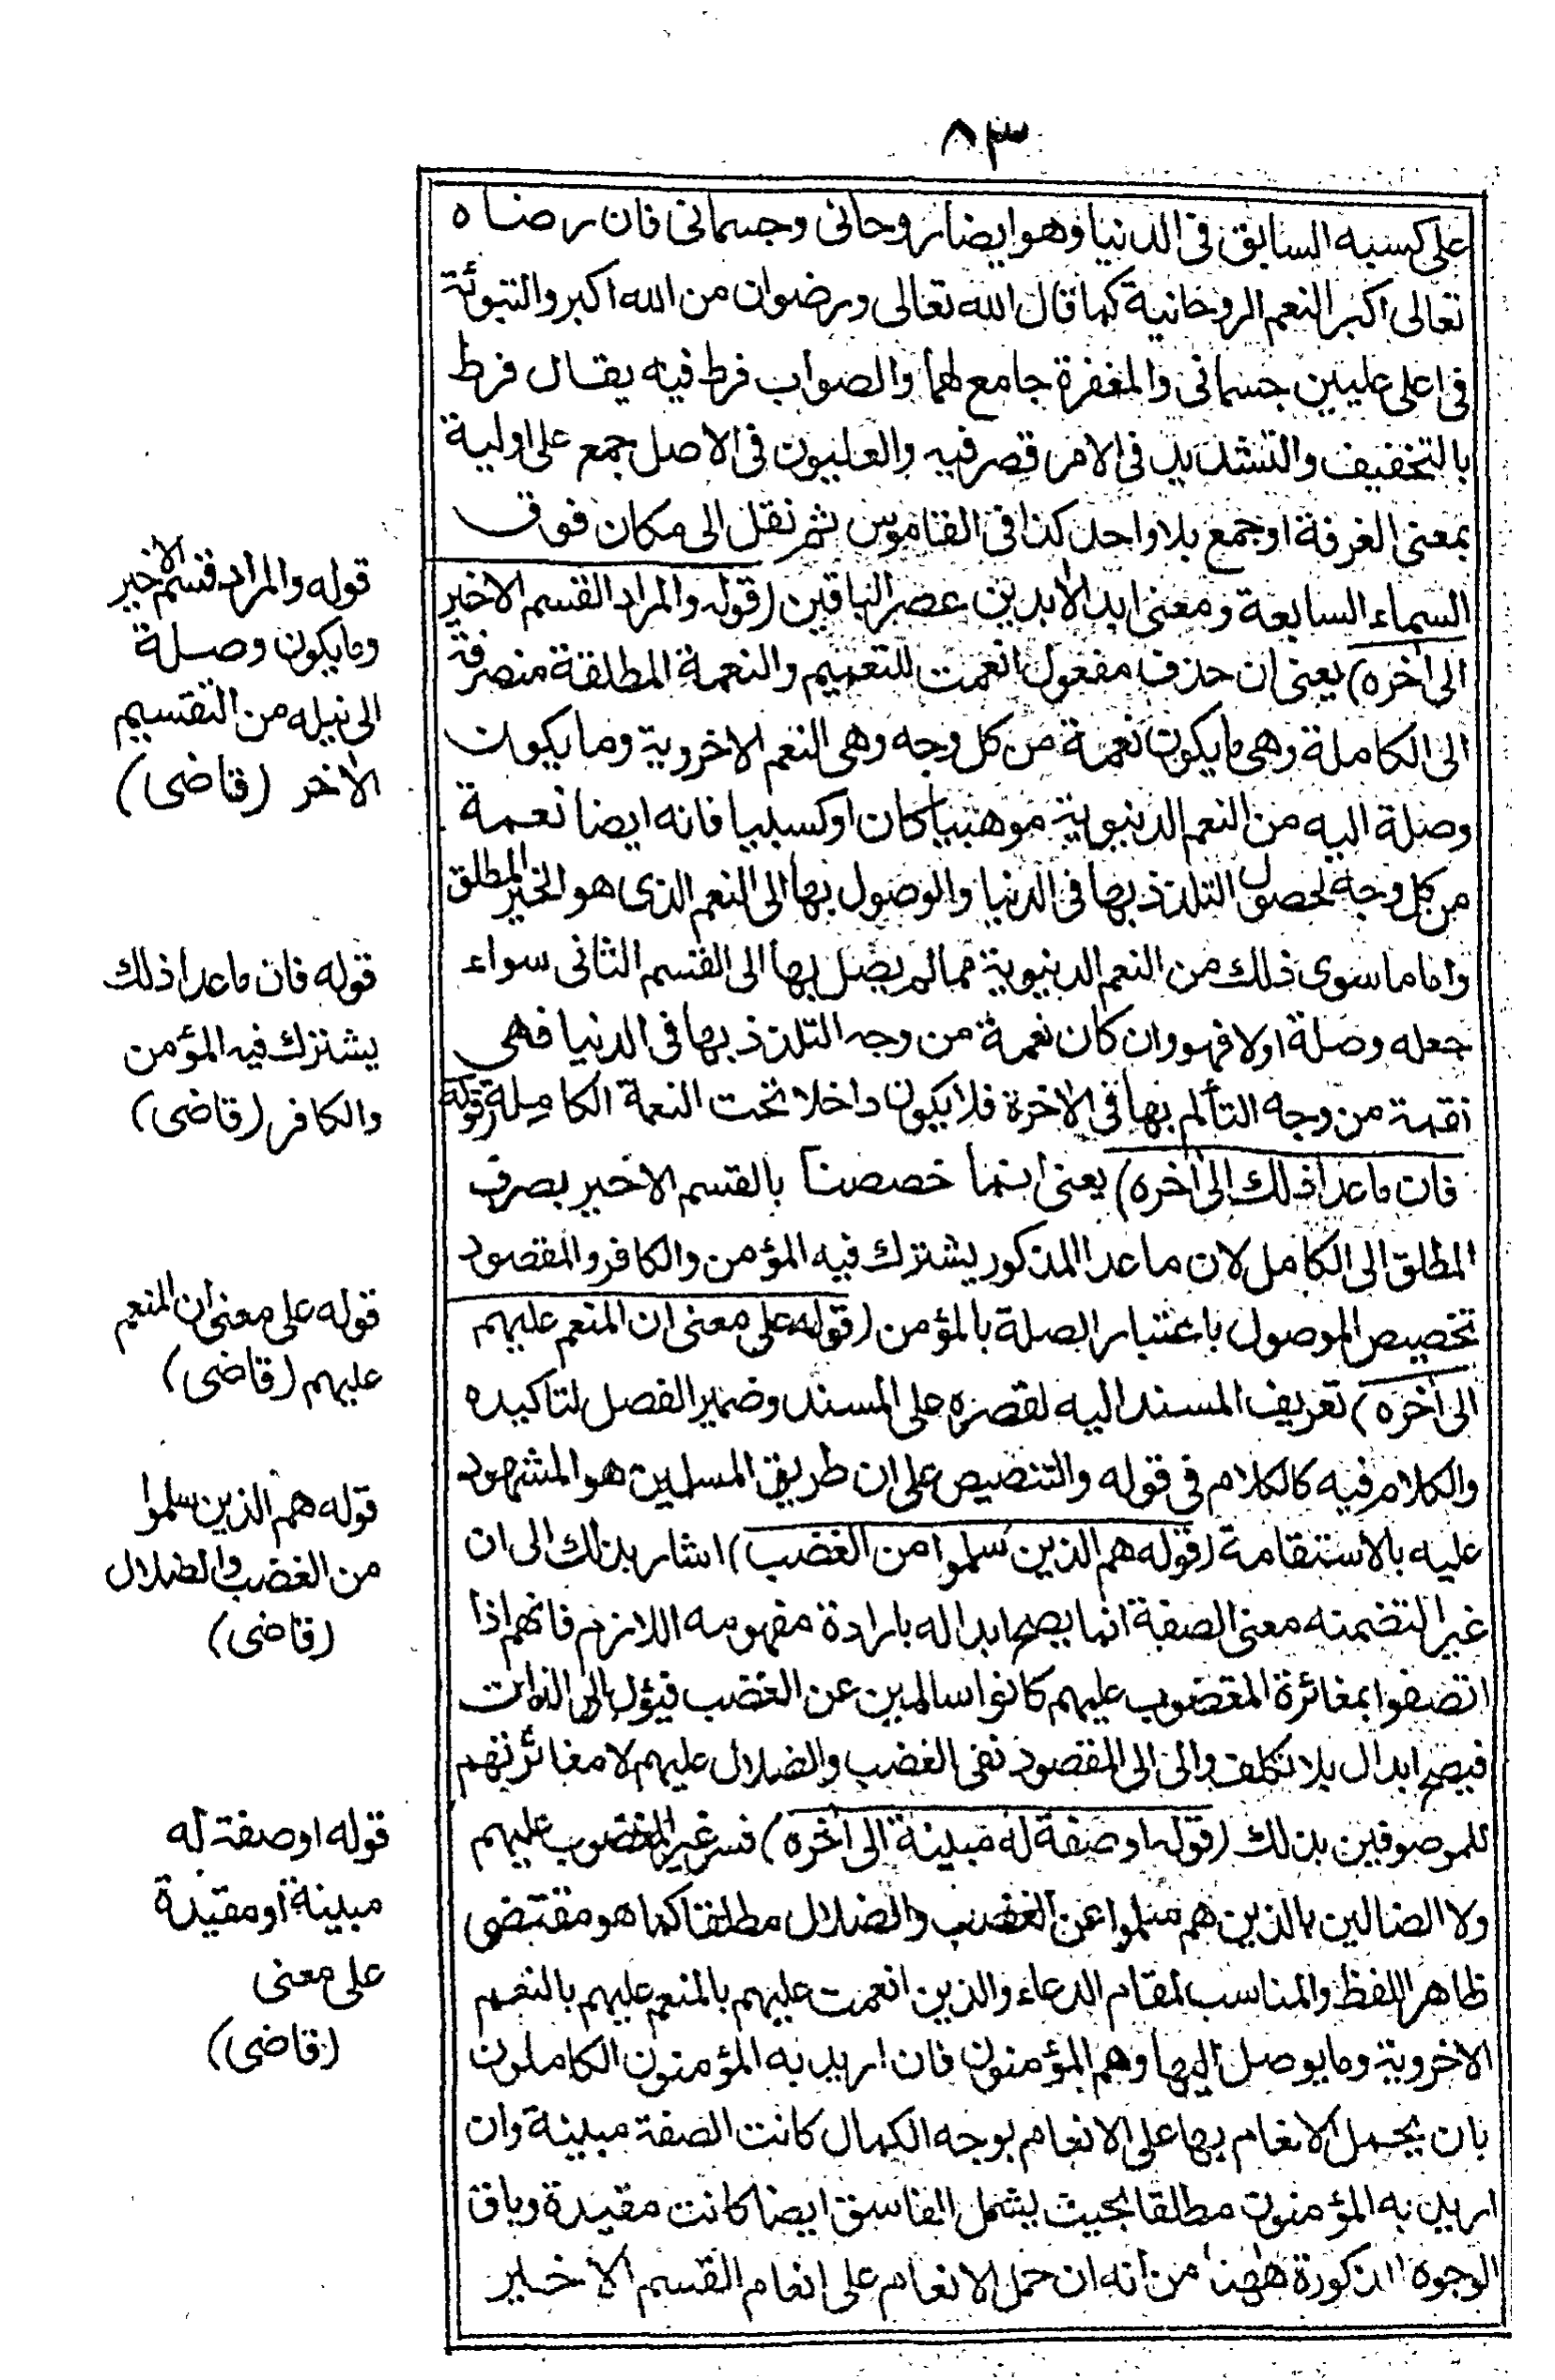 ٨٣
على كسبه السابق فى الدنيا وهو ايضا روحانى وجسمانى فان رضاه
تعالى اكبر النعم الروحانية كما قال الله تعالى ورضوان من الله اكبر والتبوئة
فى اعلى عليين جسمانى والمغفرة جامع لهما والصواب فرط فيه يقال فرط
بالتخفيف والتشديد فى الامر قصر فيه والعليون فى الاصل جمع على اولية
بمعنى الغرفة او جمع بلا واحد كذا فى القاموس ثم نقل الى مكان فوق
السماء السابعة ومعنى ابد الآبدين عصر الباقين (قوله والمراد القسم الاخير
الى آخره) يعنى ان حذف مفعول انعمت للتعميم والنعمة المطلقة منصرفة
الى الكاملة وهى ما يكون نعمة من كل وجه وهى النعم الاخروية وما يكون
وصلة اليه من النعم الدنيوية موهبيا كان او كسبيا فانه ايضا نعمة
من كل وجه لحصول التلذذ بها فى الدنيا والوصول بها الى النعم الذى هو الخير المطلق
واما ما سوى ذلك من النعم الدنيوية مما لم يصل بها الى القسم الثانى سواء
جعله وصلة اولا فهو وان كان نعمة من وجه التلذذ بها فى الدنيا فهى
نقمة من وجه التألم بها فى الاخرة فلا يكون داخلا تحت النعمة الكاملة (قوله
فان ما عدا ذلك الى آخره) يعنى انما خصصنا بالقسم الاخير بصرف
المطلق الى الكامل لان ما عدا المذكور يشترك فيه المؤمن والكافر والمقصود
تخصيص الموصول باعتبار الصلة بالمؤمن (قوله على معنى ان المنعم عليهم
الى آخره) تعريف المسند اليه لقصره على المسند وضمير الفصل لتاكيده
والكلام فيه كالكلام فى قوله والتنصيص على ان طريق المسلمين هو المشهود
عليه بالاستقامة (قوله هم الذين سلموا من الغضب) اشار بذلك الى ان
غير التضمنه معنى الصفة انما يصح ابداله بارادة مفهومه اللازم فانهم اذا
اتصفوا بمغائرة المغضوب عليهم كانوا سالمين عن الغضب فيؤل الى الذات
فيصح ابدال بلا تكلف والى المقصود نفى الغضب والضلال عليهم لا مغائرتهم
للموصوفين بذلك (قوله او صفة له مبينة الى آخره) فسر غير المغضوب عليهم
ولا الضالين بالذين هم سلموا عن الغضب والضلال مطلقا كما هو مقتضى
ظاهر اللفظ والمناسب لمقام الدعاء والذين انعمت عليهم بالمنعم عليهم بالنعم
الاخروية وما يوصل اليها وهم المؤمنون فان اريد به المؤمنون الكاملون
بان يحمل الانعام بها على الانعام بوجه الكمال كانت الصفة مبينة وان
اريد به المؤمنون مطلقا بحيث يشمل الفاسق ايضا كانت مقيدة وباق
الوجوه المذكورة ههنا من انه ان حمل الانعام على انعام القسم الاخير
قوله والمراد قسم الاخير
وما يكون وصلة
الى نيله من التقسيم
الآخر (قاضى)
قوله فان ما عدا ذلك
يشترك فيه المؤمن
والكافر (قاضى)
قوله على معنى ان المنعم
عليهم (قاضى)
قوله هم الذين سلموا
من الغضب والضلال
(قاضى)
قوله او صفة له
مبينة او مقيدة
على معنى
(قاضى)